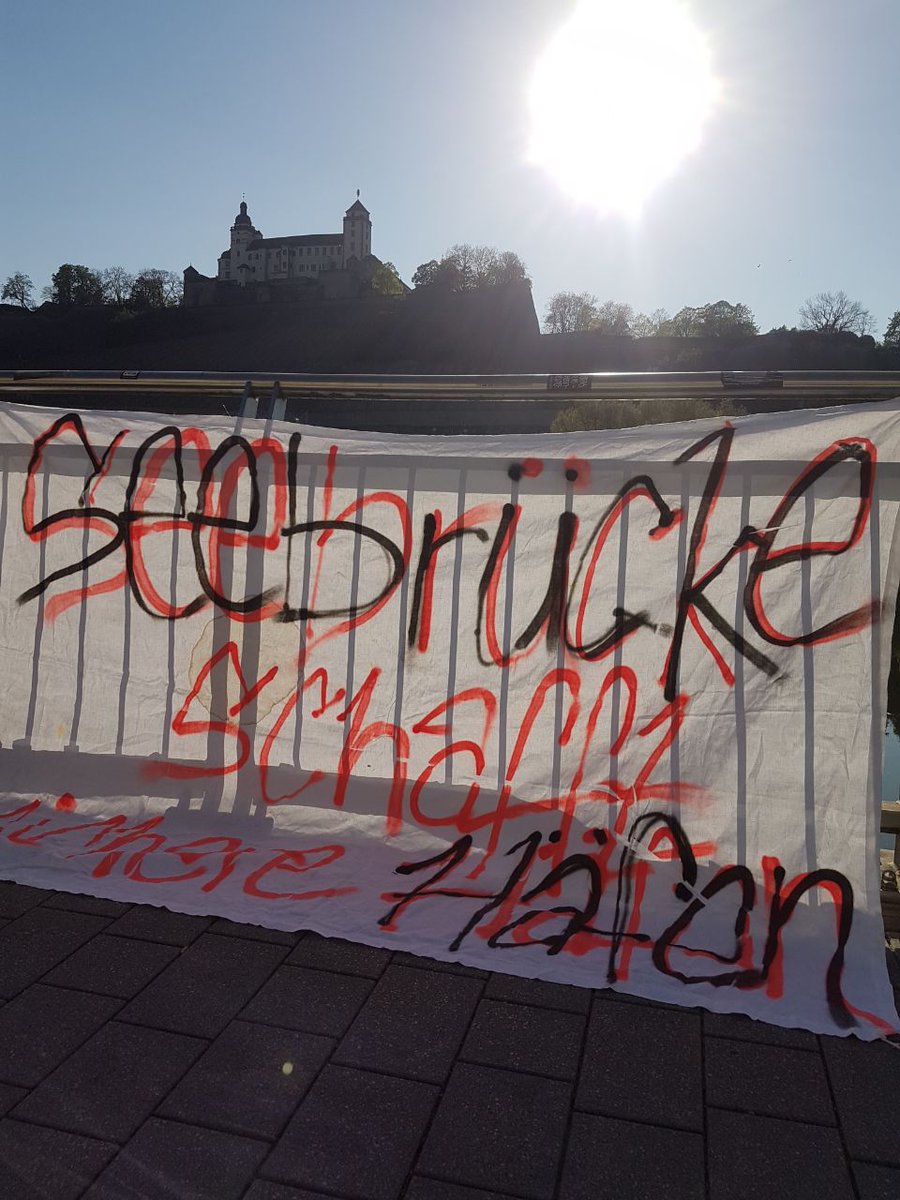 Seebrücke
schafft
sichere Häfen